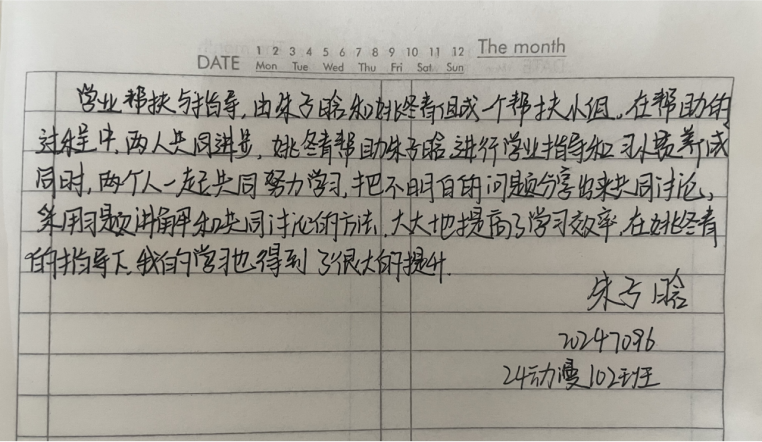 The month
DATE 1 2 3 4 5 6 7 8 9 10 11 12
Mon Tue Wed Thu Fri Sat Sun
学业帮扶与指导,由朱亏晗和姚冬青组成一个帮扶小组,在帮助的
过程中,两人共同进步,姚冬青帮助朱亏晗进行学业指导和习惯养成
同时,两个人一起共同努力学习,把不明白的问题分享出来共同讨论,
采用习题讲解和共同讨论的方法,大大地提高了学习效率,在姚冬青
的指导下,我的学习也得到了很大的提升.
朱亏晗
20247096
24动漫102班